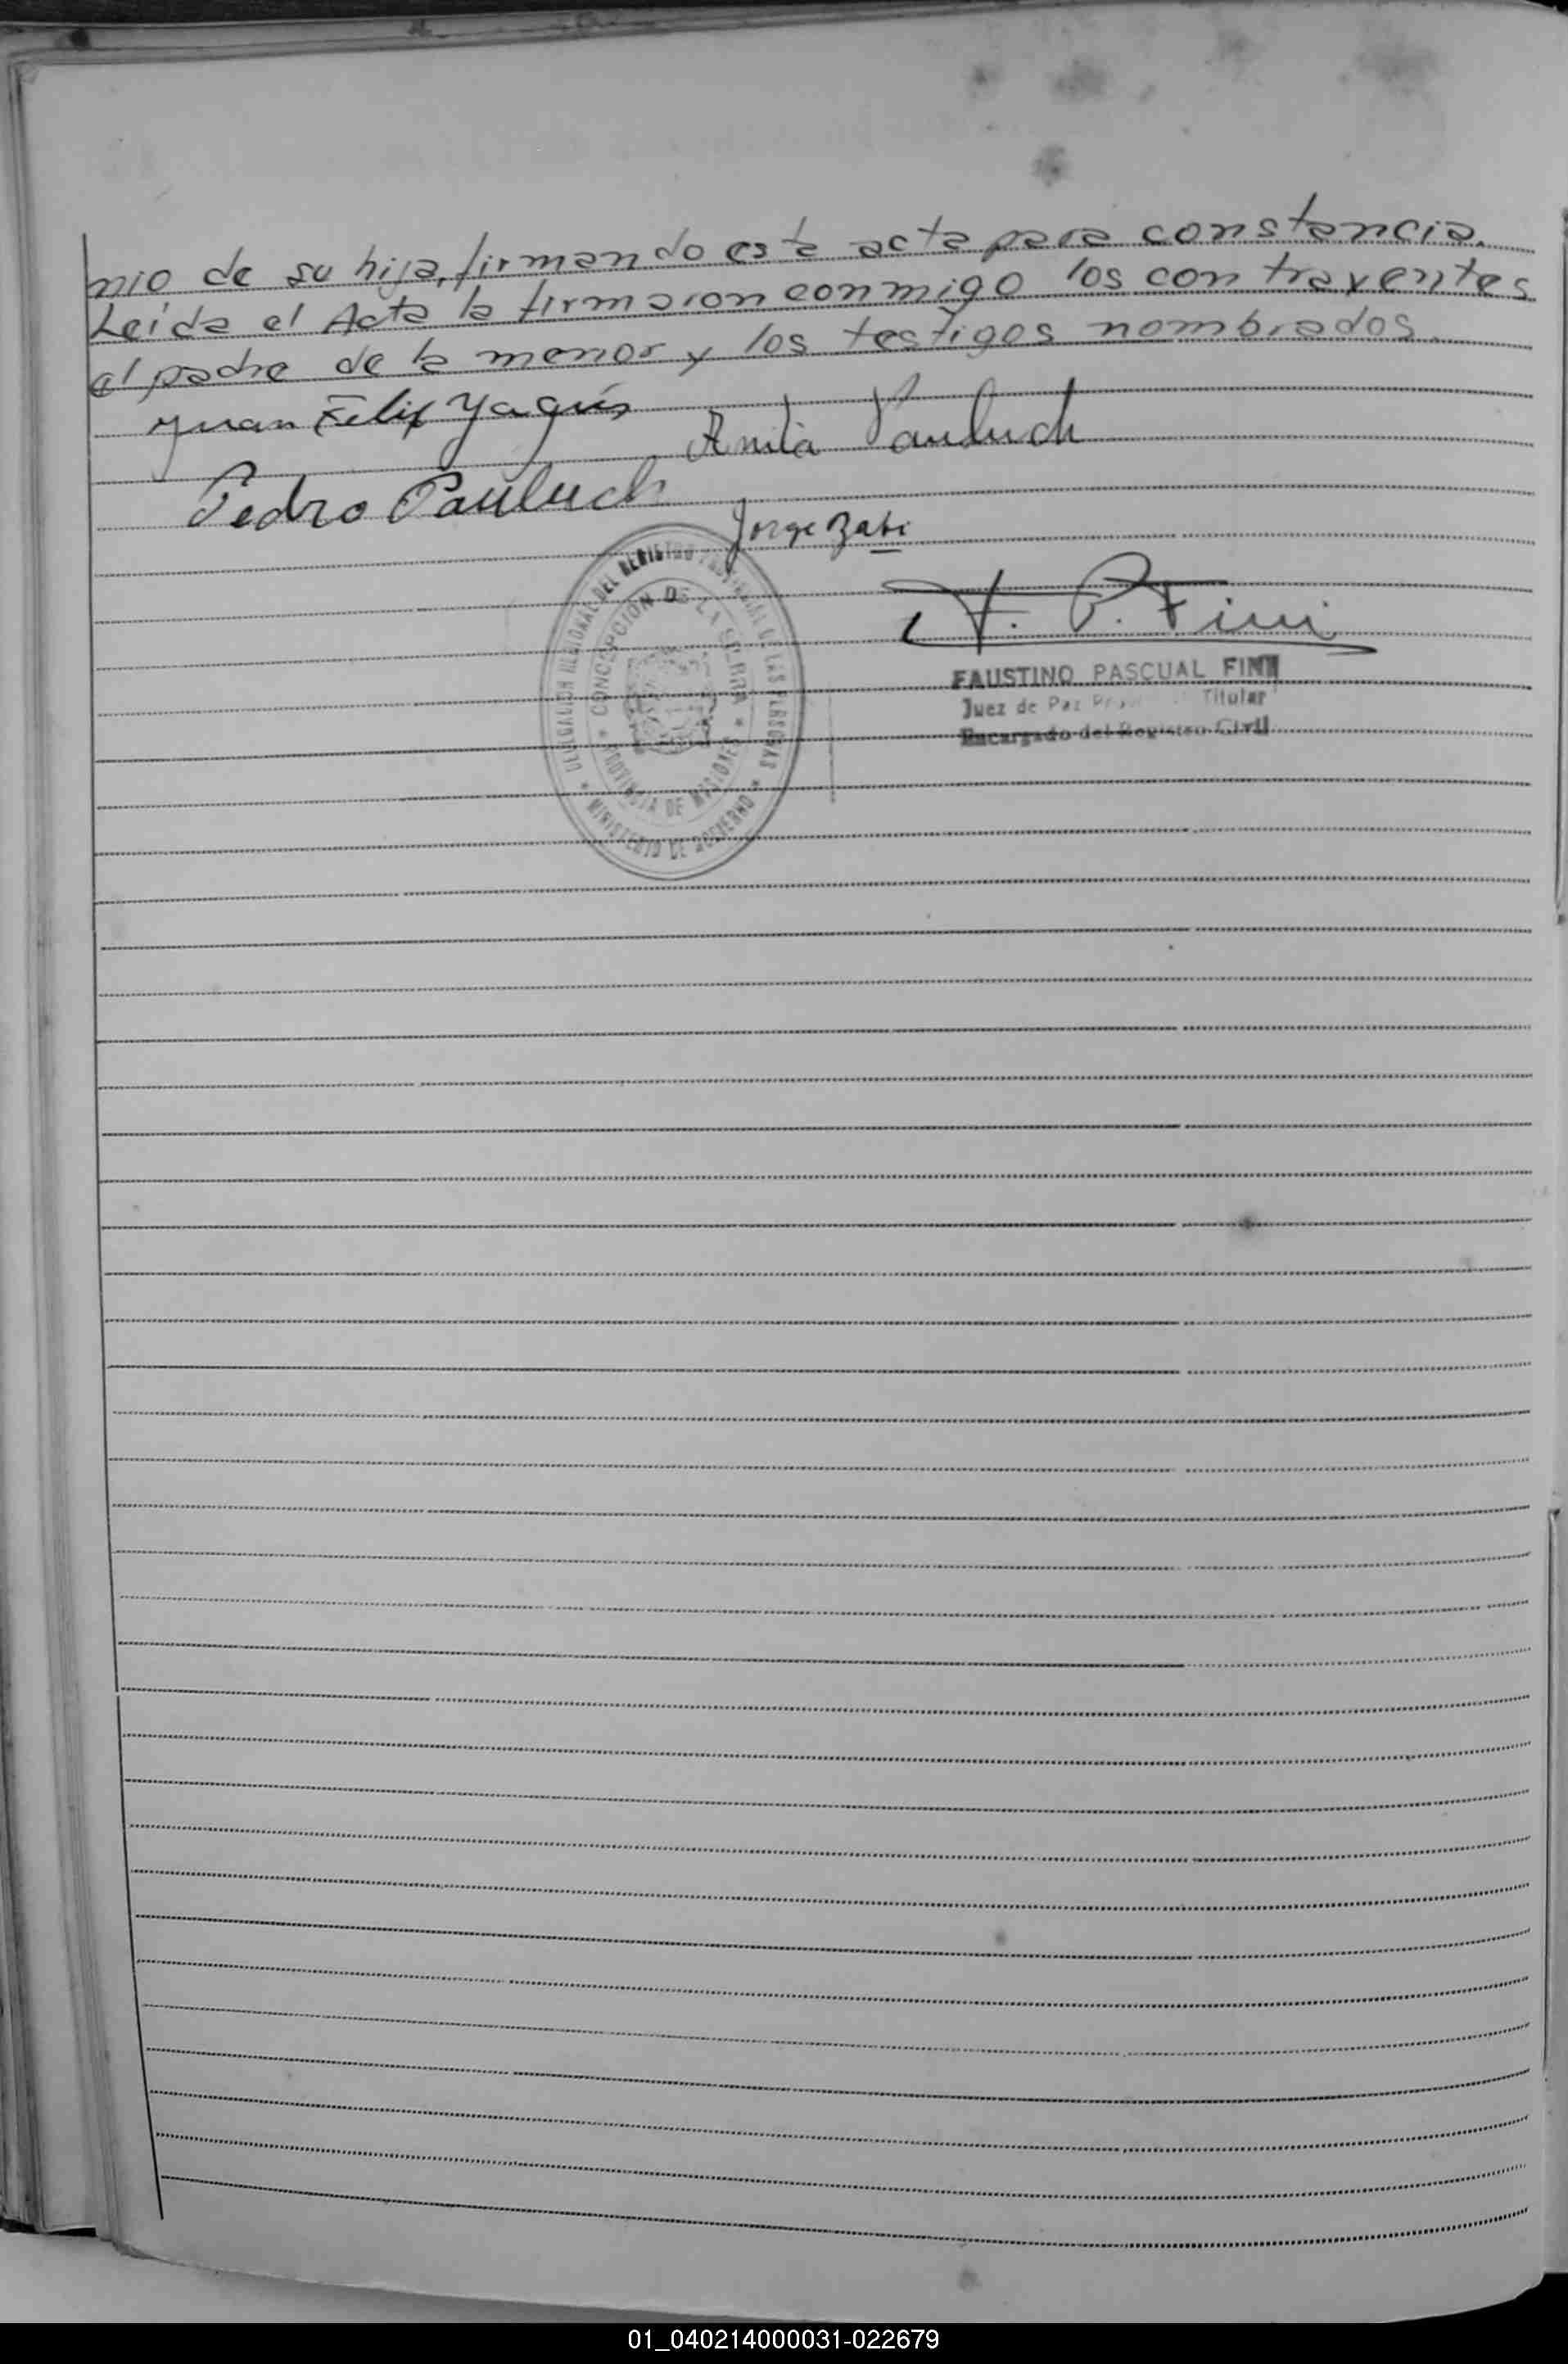 nio de su hija, firmando esta acta para constancia.
Leída el Acta la firmaron conmigo los contrayentes
el padre de la menor y los testigos nombrados.
Juan Felix Yagus
Anita Pauluch
Pedro Pauluch
Jorge Zabi
F. P. Fini
DELEGACION REGIONAL DEL REGISTRO PROVINCIAL DE LAS PERSONAS
CONCEPCION DE LA SIERRA
PROVINCIA DE MISIONES
MINISTERIO DE GOBIERNO
FAUSTINO PASCUAL FINI
Juez de Paz Titular
Encargado del Registro Civil
01_040214000031-022679